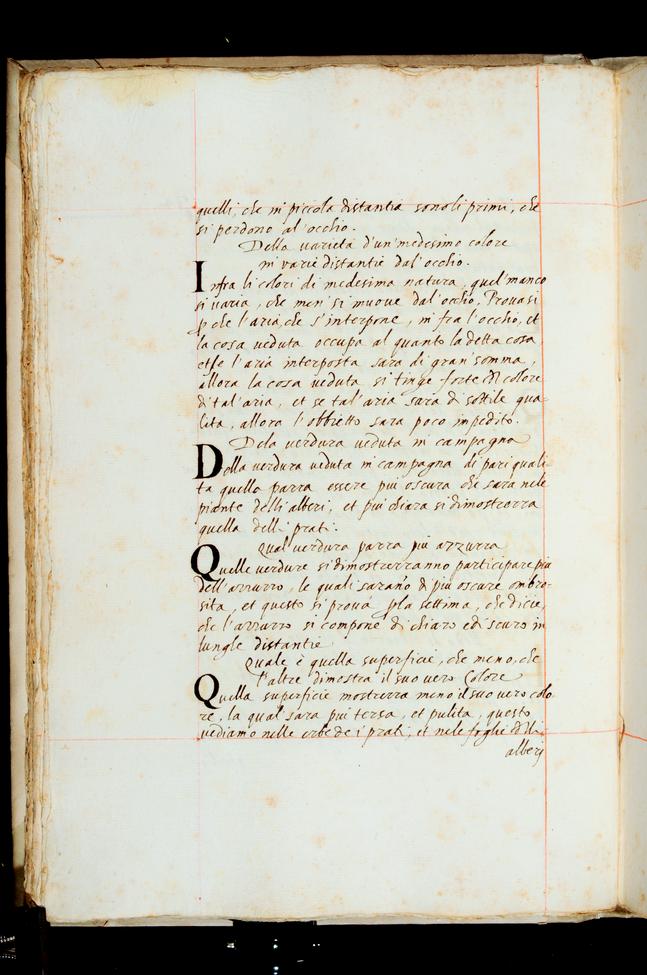 quelli, che in piccola distantia sono li primi, che
si perdono al' occhio.
Della varietà d'un' medesimo colore
in varie distantie dal' occhio.
Infra li colori di medesima natura, quel' manco
si varia, che men' si muove dal' occhio, Provasi
p che l'aria, che s'interpone, in fra l'occhio, et
la cosa veduta occupa al quanto la detta cosa
et se l'aria interposta sara di gran' somma,
allora la cosa veduta si tinge forte del colore
di tal' aria, et se tal' aria sara di sottile qua-
lita, allora l'obbietto sara poco inpedito.
Dela verdura veduta in campagna
Della verdura veduta in campagna di pari quali-
ta quella parra essere piu oscura che sara nele
piante delli alberi, et piu chiara si dimostrerra
quella delli prati.
Qual verdura parra piu azzurra
Quelle verdure si dimostrerranno participare piu
dell' azzurro, le quali saran'o di piu oscure ombro-
sita, et questo si prova p la settima, che dicie,
che l'azzurro si compone di chiaro e di scuro in
lunghe distantie
Quale è quella superficie, che meno, che
l'altre dimostra il suo vero Colore
Quella superficie mostrerra meno il suo vero colo-
re, la qual' sara piu tersa, et pulita, questo
vediamo nelle erbe de i prati, et nele foglie delli
alberj